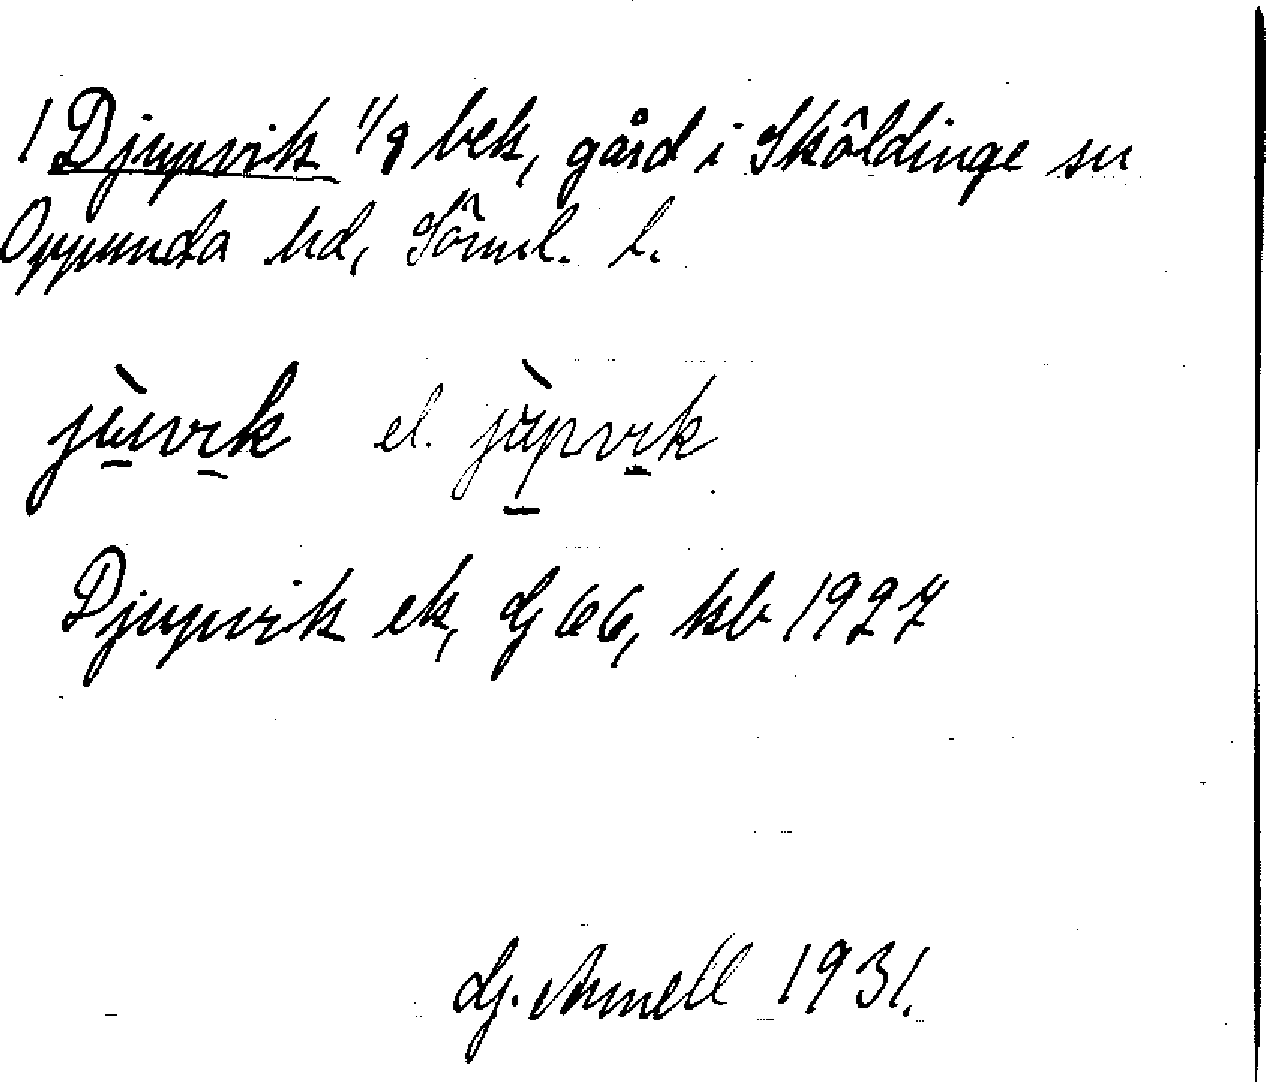 1 Djupvik 1/8 bek, gård i Sköldinge sn
Oppunda hd, Söml. l.
jùvik el. jùpvik
Djupvik ek, G 66, kb 1927
G. Armell 1931.